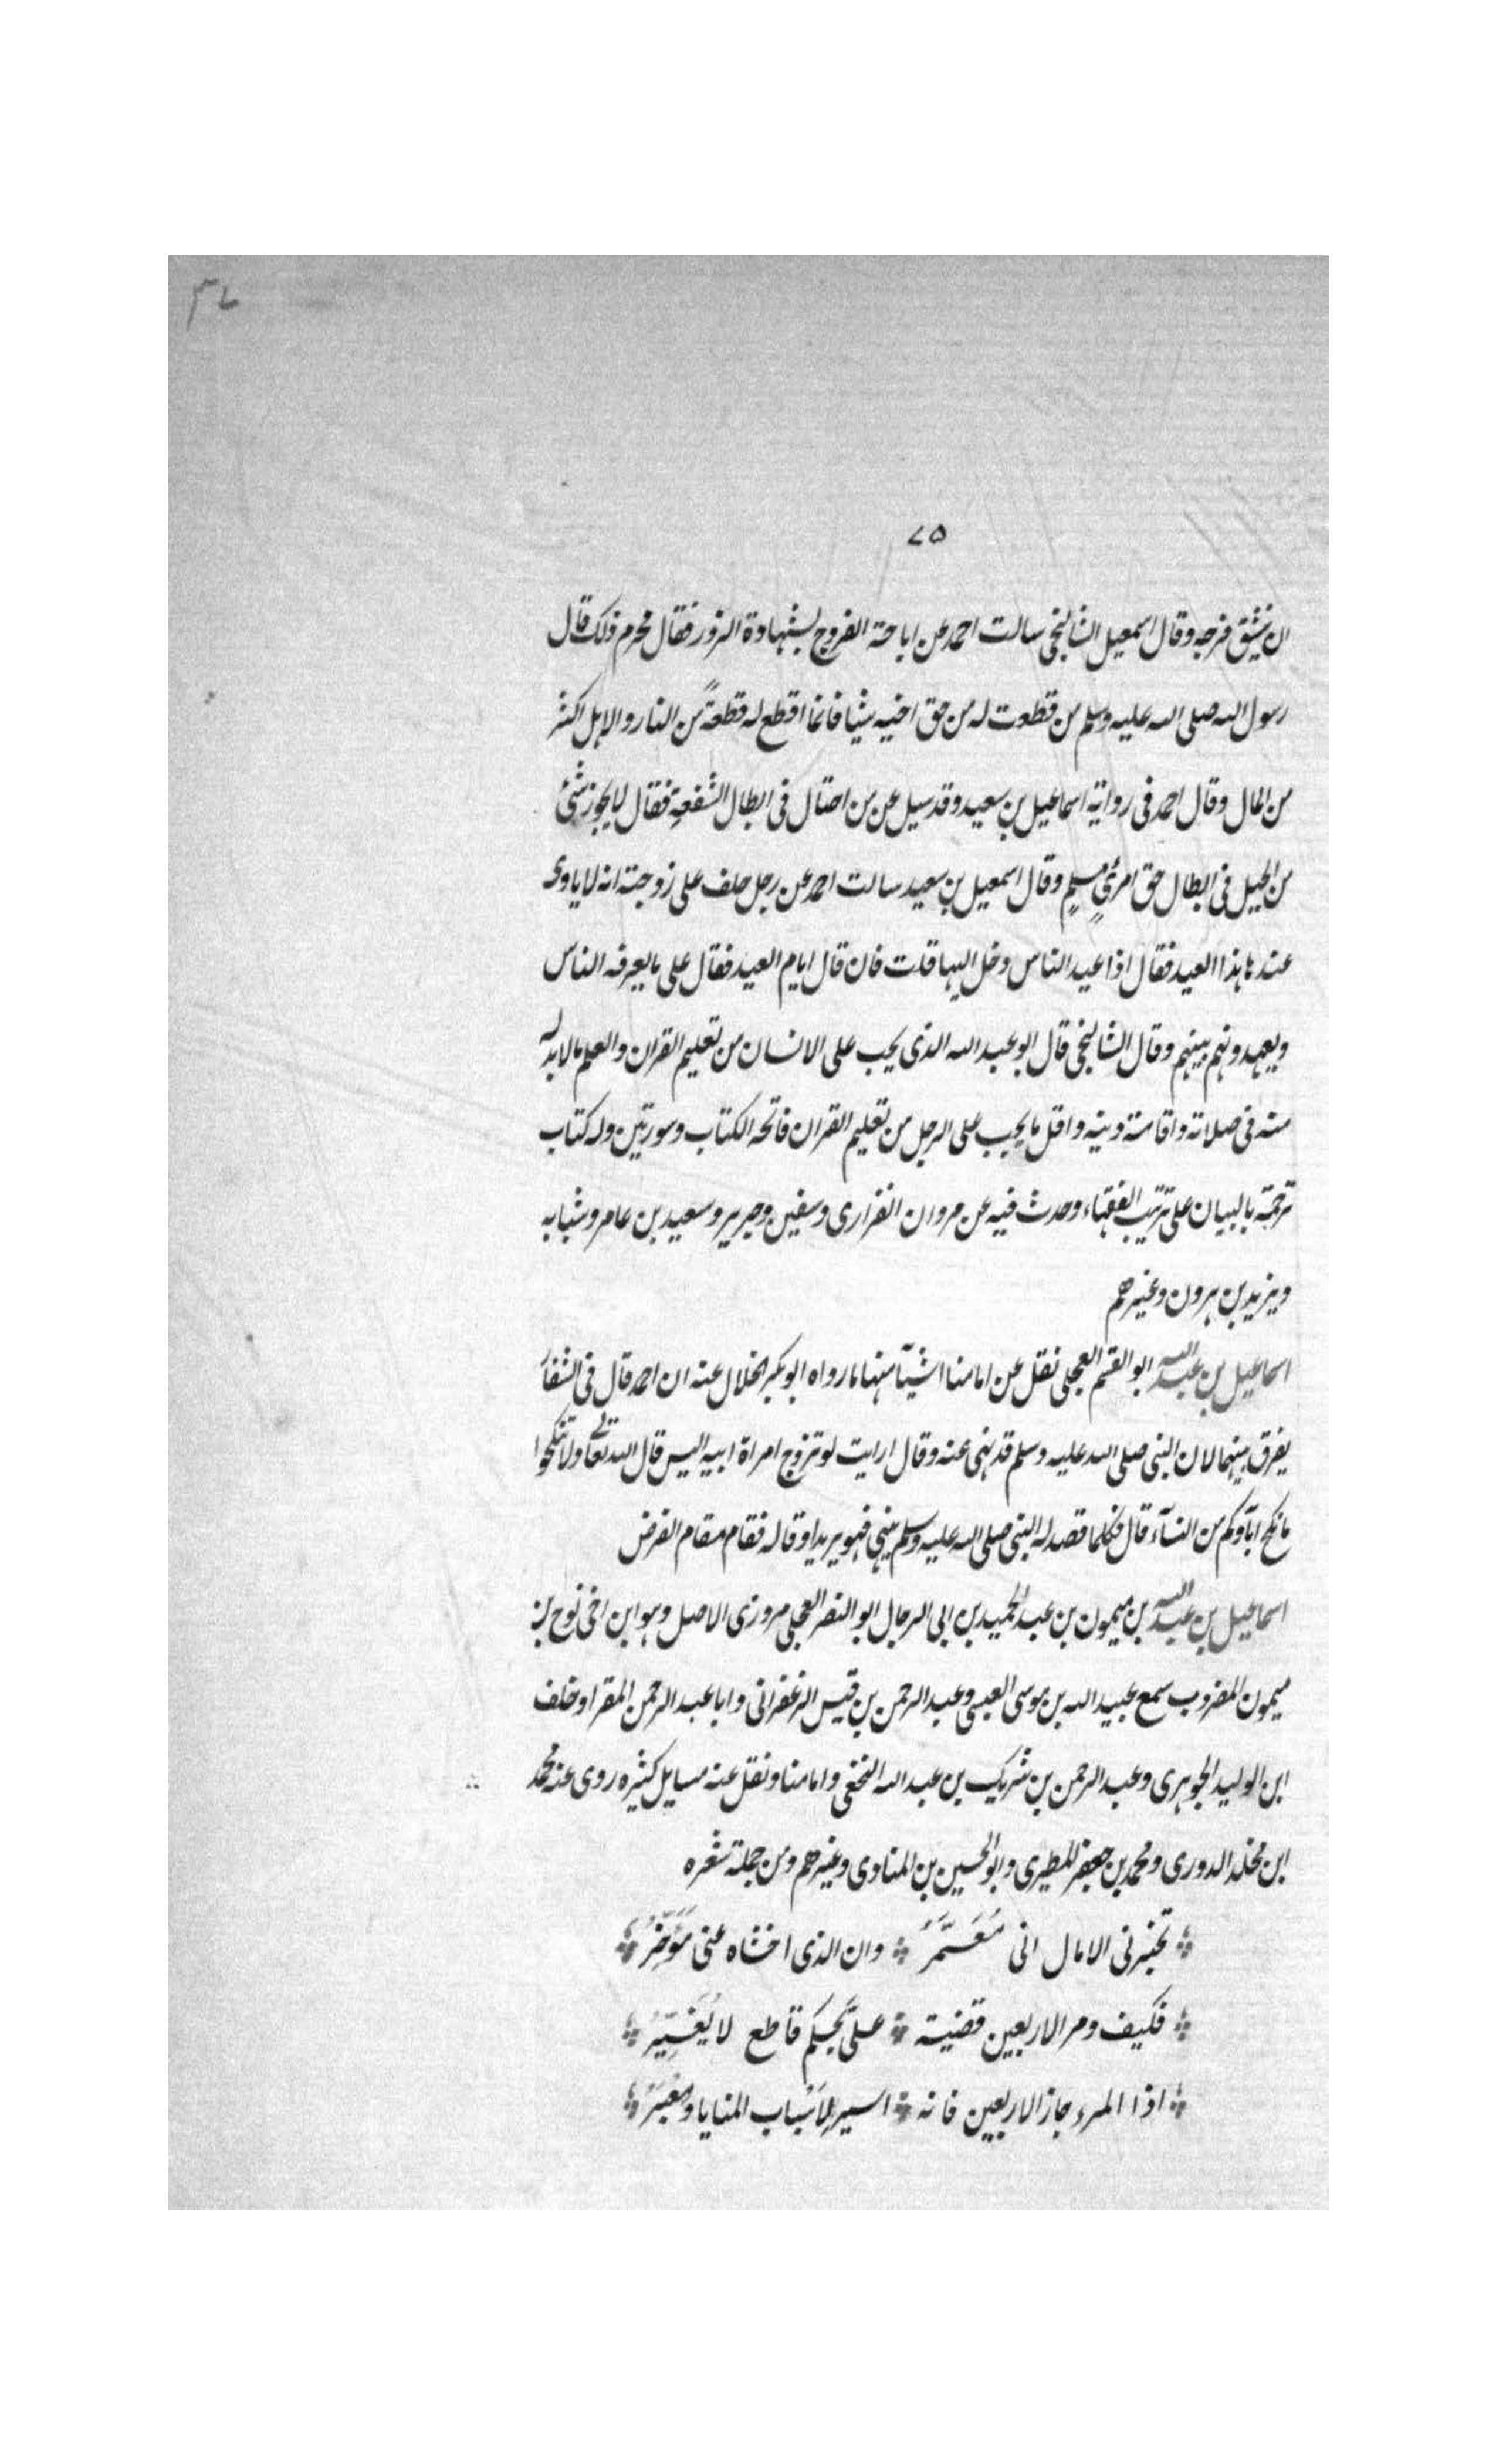 ٣٧
٧٥
ان ينشق فرجه وقال اسمعيل الشالنجى سالت احمد عن اباحة الفروج بشهادة الزور فقال محرم ذلك قال
رسول الله صلى الله عليه وسلم من قطعت له من حق اخيه شيا فانما اقطع له قطعةً من النار والاهل اكثر
من المال وقال احمد فى رواية اسماعيل بن سعيد وقد سيل عن من احتال فى ابطال الشفعةِ فقال لا يجوز شىٔ
من الحيل فى ابطال حق امرئٍ مسلمٍ وقال اسمعيل بن سعيد سالت احمد عن رجل حلف على زوجته انه لا ياوى
عندها هذا العيد فقال اذا عيد الناس دخل اليها قلت فان قال ايام العيد فقال على ما يعرفه الناس
ويعهدونهم بينهم وقال الشالنجى قال ابو عبد الله الذى يجب على الانسان من تعليم القران والعلم مالا بد له
منه فى صلاته واقامة دينه واقل ما يجب على الرجل من تعليم القران فاتحه الكتاب وسورتين وله كتاب
ترجمة بالبيان على ترتيب الفقهاء وحدث فيه عن مروان الفزارى وسفين وجرير وسعيد بن عامر وشبابه
ويزيد بن هرون وغيرهم
اسماعيل بن عبد الله ابو القسم العجلى نقل عن امامنا اشيآ منها ما رواه ابو بكر الخلال عنه ان احمد قال فى الشغار
يفرق بينهما لان النبى صلى الله عليه وسلم قد نهى عنه وقال ارايت لو تزوج امراة ابيه اليس قال الله تعالى ولا تنكحوا
ما نكح ابآوكم من النسآء قال فكلما قصد له النبى صلى الله عليه وسلم بنهى فهو يريد اوقاله فقام مقام الفرض
اسماعيل بن عبد الله بن ميمون بن عبد الحميد بن ابى الرجال ابو النضر العجلى مروزى الاصل وهو ابن اخى نوح بن
ميمون المضروب سمع عبيد الله بن موسى العبسى وعبد الرحمن بن قيس الزعفرانى وابا عبد الرحمن المقرا وخلف
ابن الوليد الجوهرى وعبد الرحمن بن شريك بن عبد الله النخعى وامامنا ونقل عنه مسايل كثيره روى عنه محمد
ابن مخلد الدورى ومحمد بن جعفر المطيرى وابو الحسين بن المنادى وغيرهم ومن جملة شعره
تخبرنى الامال انى مُعَمَّرُ وان الذى اخشاه عنى مُؤَخَّرُ
فكيف ومر الاربعين قضية علىَّ بحكم قاطع لا يُغَيَّرُ
اذا المرء جاز الاربعين فانه اسير لِاَسْباب المنايا ومَعْبَرُ